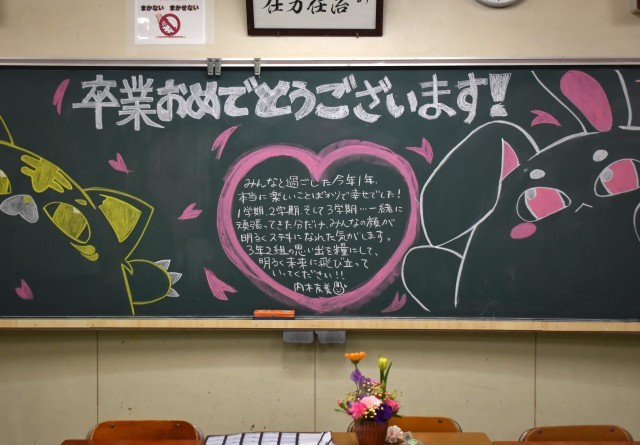 まかない まかせない
任力任治
卒業おめでとうございます!
みんなと過ごした今年1年、
本当に楽しいことばかりで幸せでした!
1学期、2学期 そして3学期…一緒に
頑張ってきた分だけ、みんなの顔が
明るくステキになれた気がします。
3年2組の思い出を糧にして、
明るく未来に飛び立って
いってください!!
内木友美